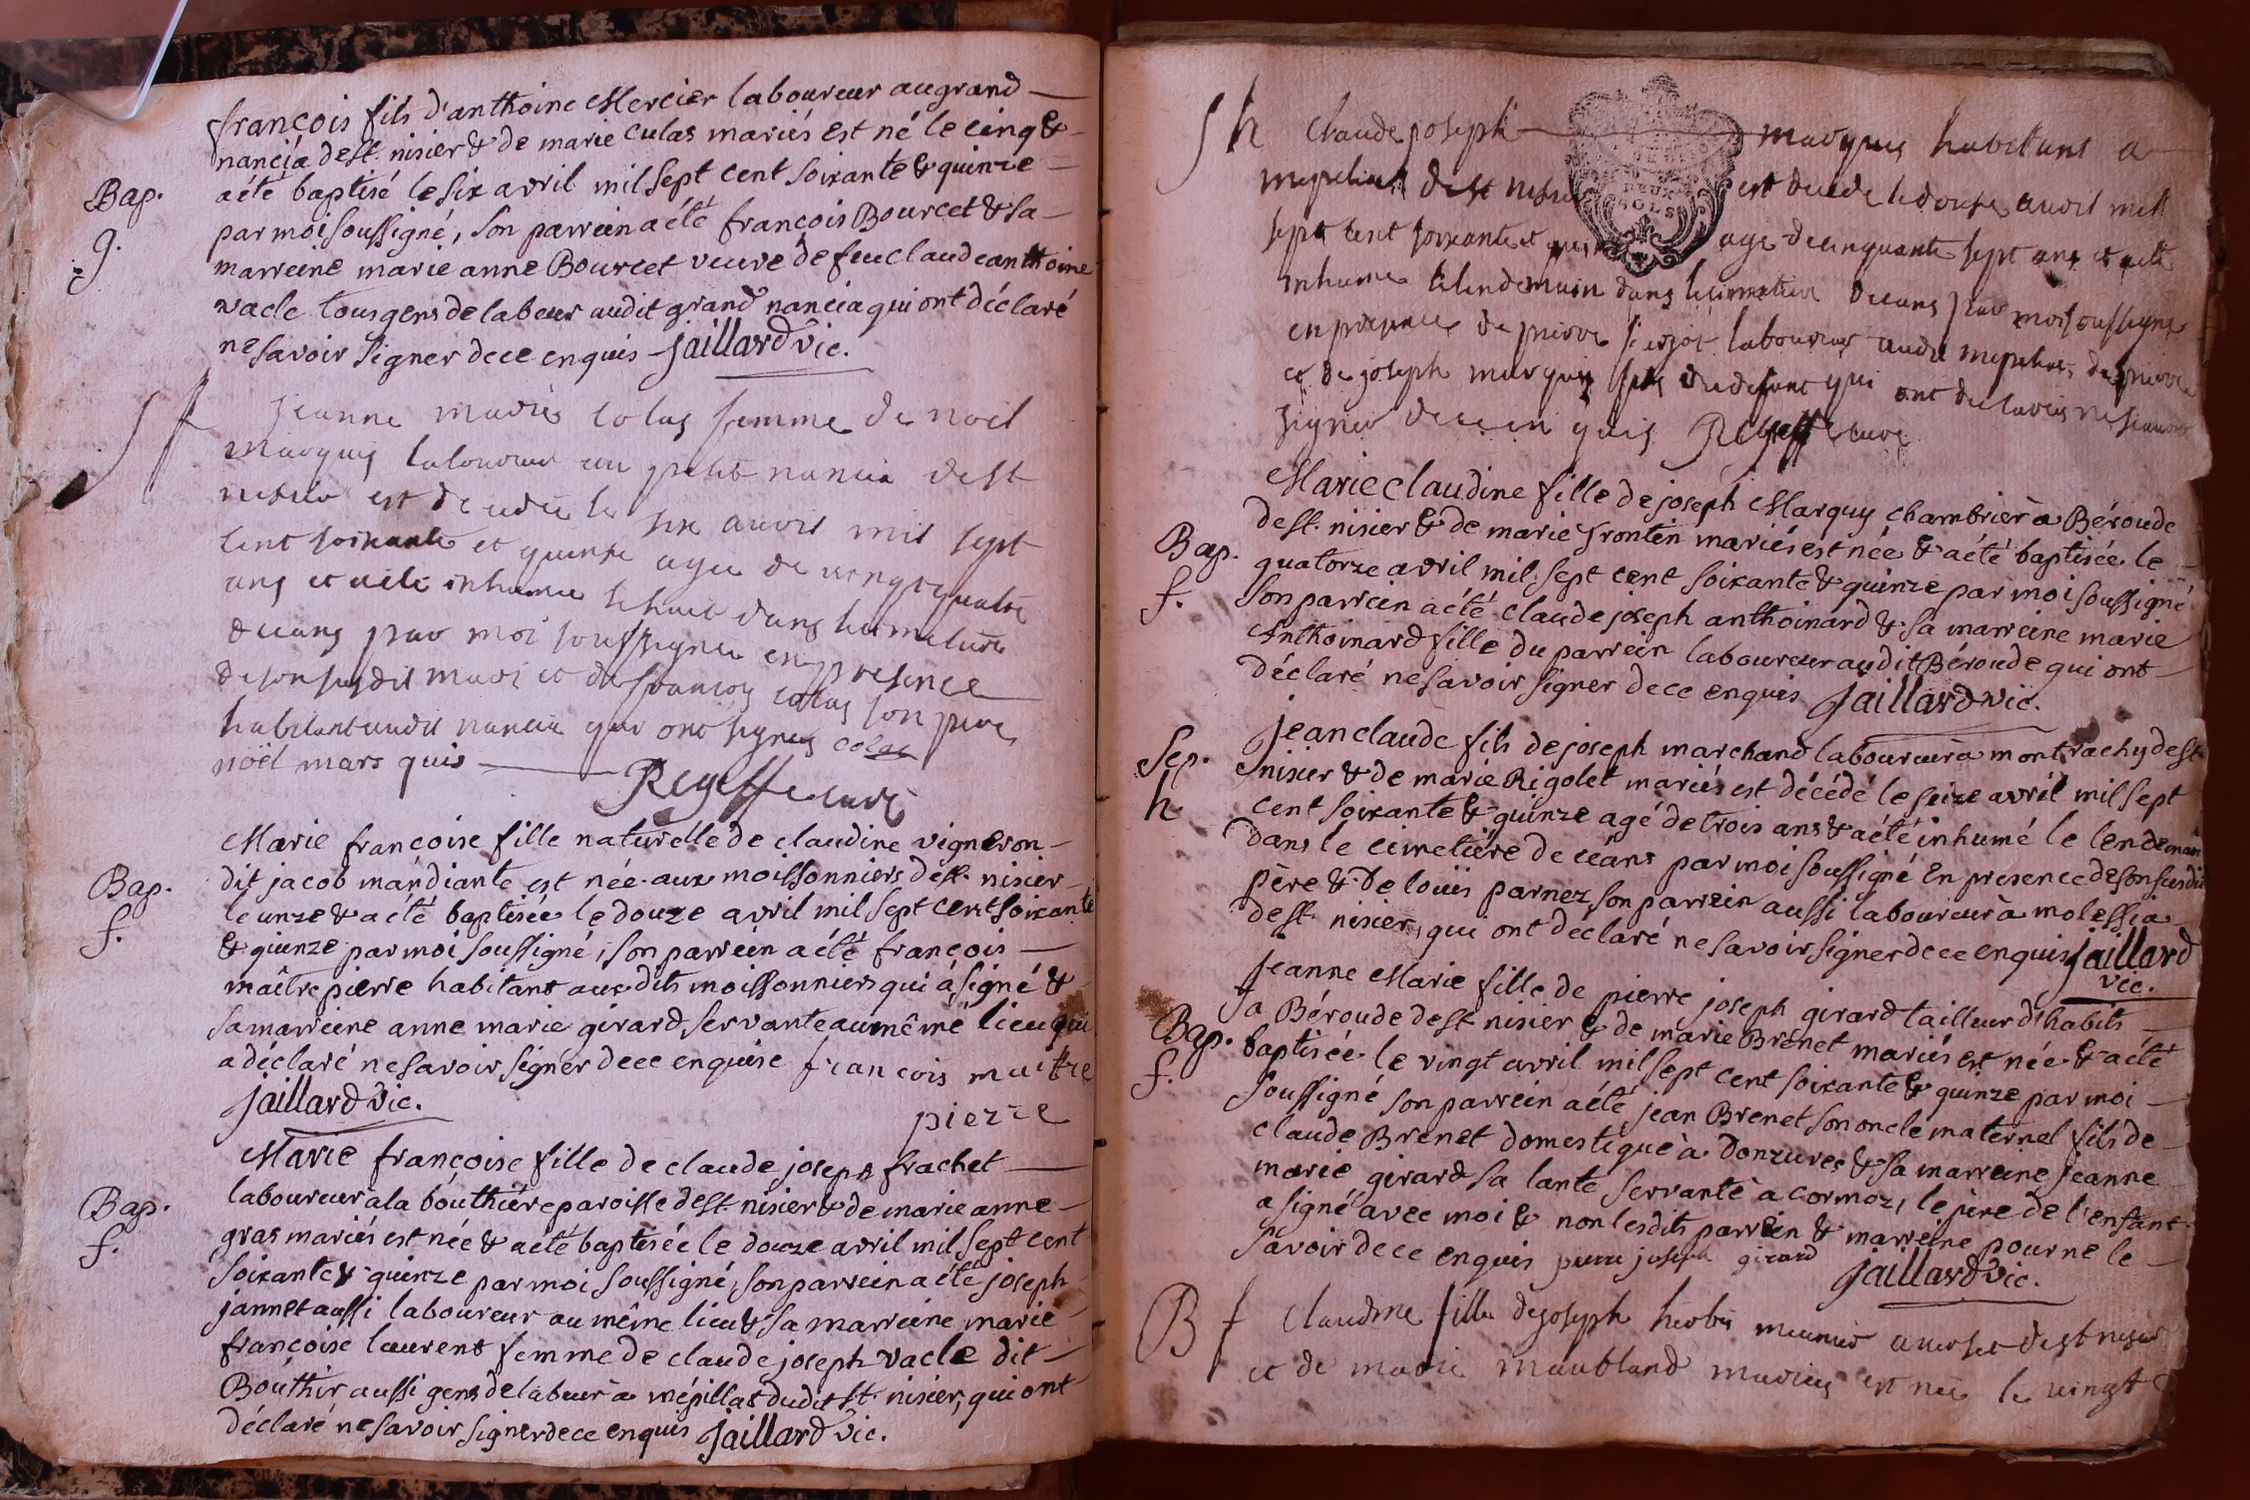 françois fils d'anthoine Mercier laboureur au grand
nancia de st. nisier & de marie culas mariés est né le cinq &
Bap.
g.
a été baptisé le six avril mil sept cent soixante & quinze
par moi soussigné, son parrein a été françois Bourcet & sa
marreine marie anne Bourcet veuve de feu claude anthoine
vacle tous gens de labeur audit grand nancia qui ont déclaré
ne savoir signer de ce enquis jaillard vic.
S f
jeanne marie colas femme de noël
marquis laboureur au petit nancia de st
nisier est decedee le six avril mil sept
cent soixante et quinze agee de vingt quatre
ans et a ete inhumee le huit dans le cimetiere
de ceans par moi soussigne en presence
de son susdit mari et de francois colas son pere
habitant audit nancia qui ont signes colas
noël mars quis Regeffe curé
Marie françoise fille naturelle de claudine vigneron
Bap.
f.
dit jacob mandiante est née aux moissonniers de st. nisier
le unze & a été baptisée le douze avril mil sept cent soixante
& quinze par moi soussigné, son parrein a été françois
maître pierre habitant aux dits moissonniers qui a signé &
sa marreine anne marie girard servante au même lieu qui
a déclaré ne savoir signer de ce enquise francois maitre
jaillard vic.
pierre
Marie françoise fille de claude joseph frachet
Bap.
f.
laboureur à la bouthière paroisse de st. nisier & de marie anne
gras mariés est née & a été baptisée le douze avril mil sept cent
soixante & quinze par moi soussigné, son parrein a été joseph
jannet aussi laboureur au même lieu & sa marreine marie
françoise laurent femme de claude joseph vacle dit
Bouthir aussi gens de labeur à mépillat dudit st. nisier, qui ont
déclaré ne savoir signer de ce enquis jaillard vic.
S h
claude joseph marquis habitant a
de st nisier est decede le douze avril mil
sept cent soixante et age de cinquante sept ans et a ete
inhume le lendemain dans le cimetiere de ceans par moi soussigne
en presence de pierre laboureur audit
et de joseph marquis du defunt qui ont declares ne scavoir
signer de ce en quis Regeffe cure
Marie claudine fille de joseph Marquis chambrier à Béroude
Bap.
f.
de st. nisier & de marie frontin mariés est née & a été baptisée le
quatorze avril mil sept cent soixante & quinze par moi soussigné
son parrein a été claude joseph anthoinard & sa marreine marie
Anthoinard fille du parrein laboureur audit Béroude qui ont
déclaré ne savoir signer de ce enquis jaillard vic.
Sep.
h
jean claude fils de joseph marchand laboureur à montrachy de st.
nisier & de marie Rigolet mariés est décédé le seize avril mil sept
cent soixante & quinze agé de trois ans & a été inhumé le lendemain
dans le cimetière de céans par moi soussigné en presence de son susdit
père & de loüis parnez son parrein aussi laboureur à molessia
de st. nisier, qui ont déclaré ne savoir signer de ce enquis jaillard
vic.
jeanne Marie fille de pierre joseph girard tailleur d'habits
Bap.
f.
a Béroude de st. nisier & de marie Brenet mariés est née & a été
baptisée le vingt avril mil sept cent soixante & quinze par moi
soussigné son parrein a été jean Brenet son oncle maternel fils de
claude Brenet domestique à donzures & sa marreine jeanne
marie girard sa tante servante a cormoz, le père de l'enfant
a signé avec moi & non lesdits parrein & marreine pour ne le
savoir de ce enquis pierre joseph girard
jaillard vic.
B f
claudine fille de joseph meunier de st nisier
et de marie maubland maries est nee le vingt